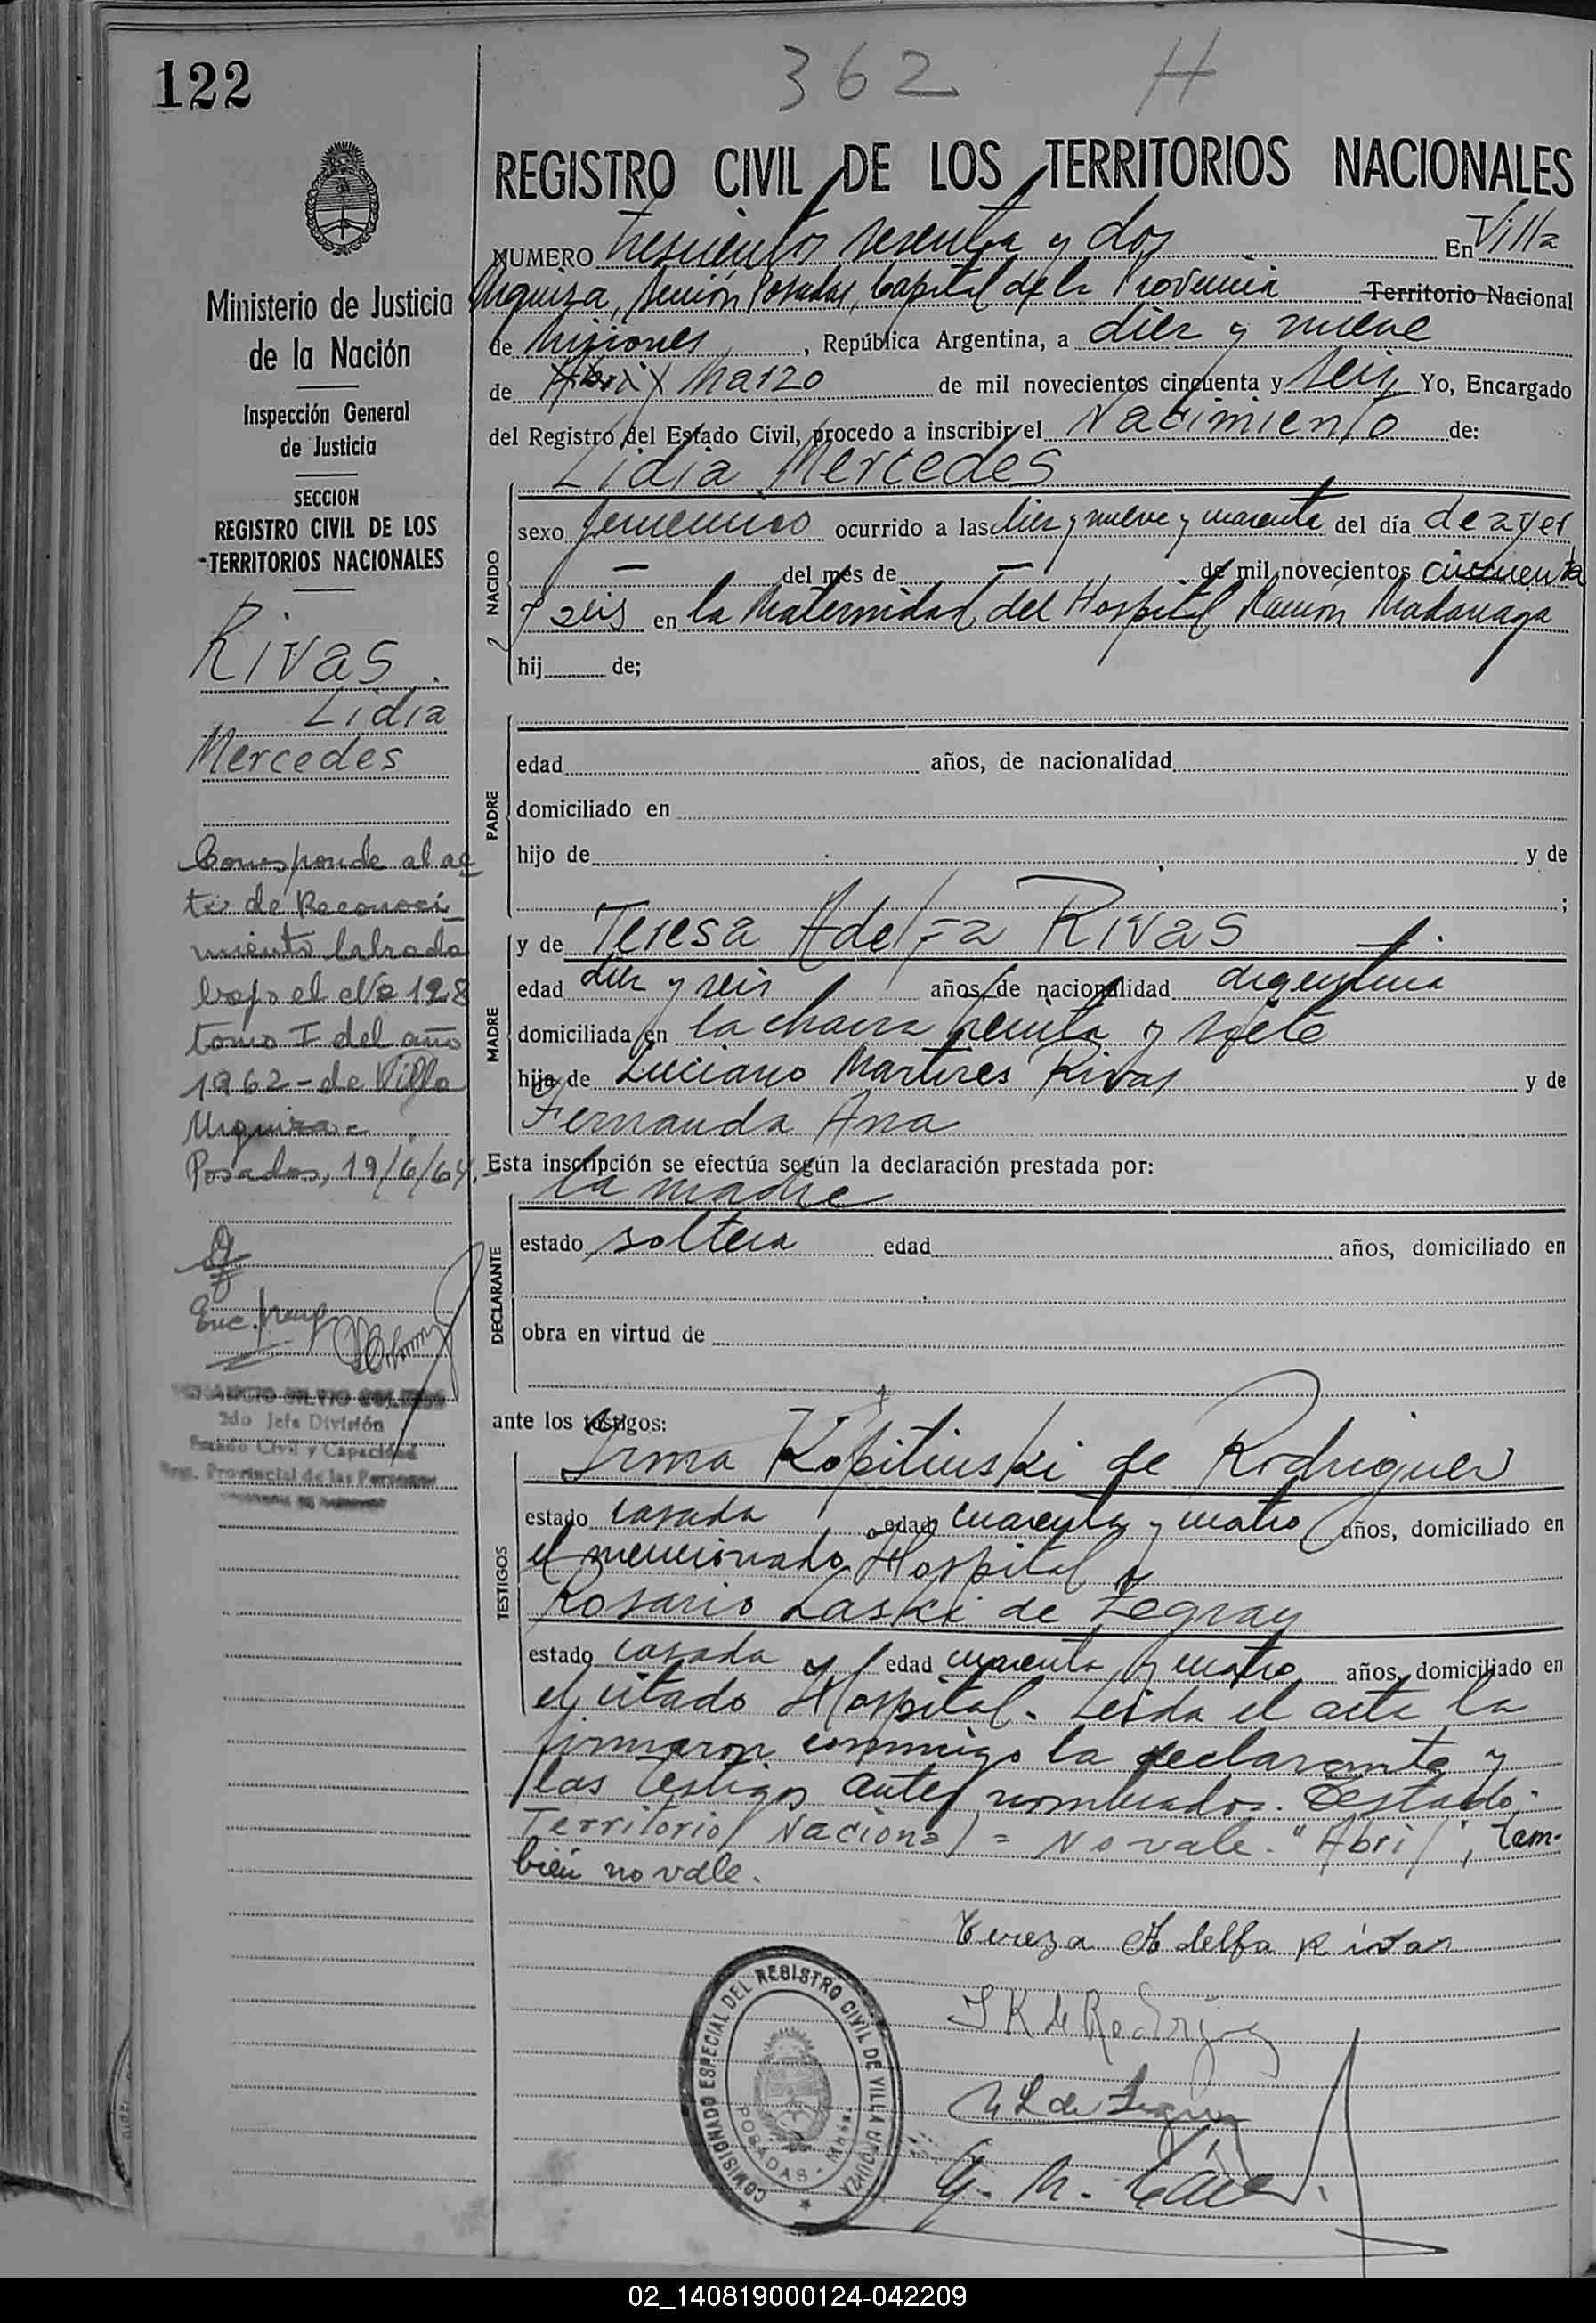 122
362 H
REGISTRO CIVIL DE LOS TERRITORIOS NACIONALES
NUMERO trescientos sesenta y dos En Villa
Urquiza, Sección Posadas, Capital de la Provincia Territorio Nacional
de Misiones, República Argentina, a diez y nueve
de Abril Marzo de mil novecientos cincuenta y seis Yo, Encargado
del Registro del Estado Civil, procedo a inscribir el Nacimiento de:
Lidia Mercedes
NACIDO
sexo femenino ocurrido a las diez y nueve y cuarenta del día de ayer
— del mes de — de mil novecientos cincuenta
y seis en la Maternidad del Hospital Ramón Madariaga
hij de;
PADRE
edad años, de nacionalidad
domiciliado en
hijo de y de
;
MADRE
y de Teresa Adelfa Rivas
edad diez y seis años, de nacionalidad argentina
domiciliada en la chacra treinta y siete
hija de Luciano Martires Rivas y de
Fernanda Ana
Esta inscripción se efectúa según la declaración prestada por:
la madre
DECLARANTE
estado soltera edad años, domiciliado en
obra en virtud de
ante los testigos:
TESTIGOS
Irma Kopitinski de Rodriguez
estado casada edad cuarenta y cuatro años, domiciliado en
el mencionado Hospital y
Rosario Laski de Legray
estado casada y edad cuarenta y cuatro años, domiciliado en
el citado Hospital. Leida el acta la
firmaron conmigo la declarante y
las testigos antes nombrados. Testado:
Territorio Nacional = No vale. "Abril", tam-
bién no vale.
Tereza Adelfa Rivas
I K de Rodriguez
R L de Legray
COMISIONADO ESPECIAL DEL REGISTRO CIVIL DE VILLA URQUIZA
POSADAS - Mnes.
Ministerio de Justicia
de la Nación
Inspección General
de Justicia
SECCION
REGISTRO CIVIL DE LOS
TERRITORIOS NACIONALES
Rivas
Lidia
Mercedes
Corresponde al ac
ta de Reconoci
miento labrada
bajo el No 128
tomo I del año
1962 - de Villa
Urquiza -
Posadas, 19/6/64.
2do Jefe División
Estado Civil y Capacidad
Reg. Provincial de las Personas
02_140819000124-042209